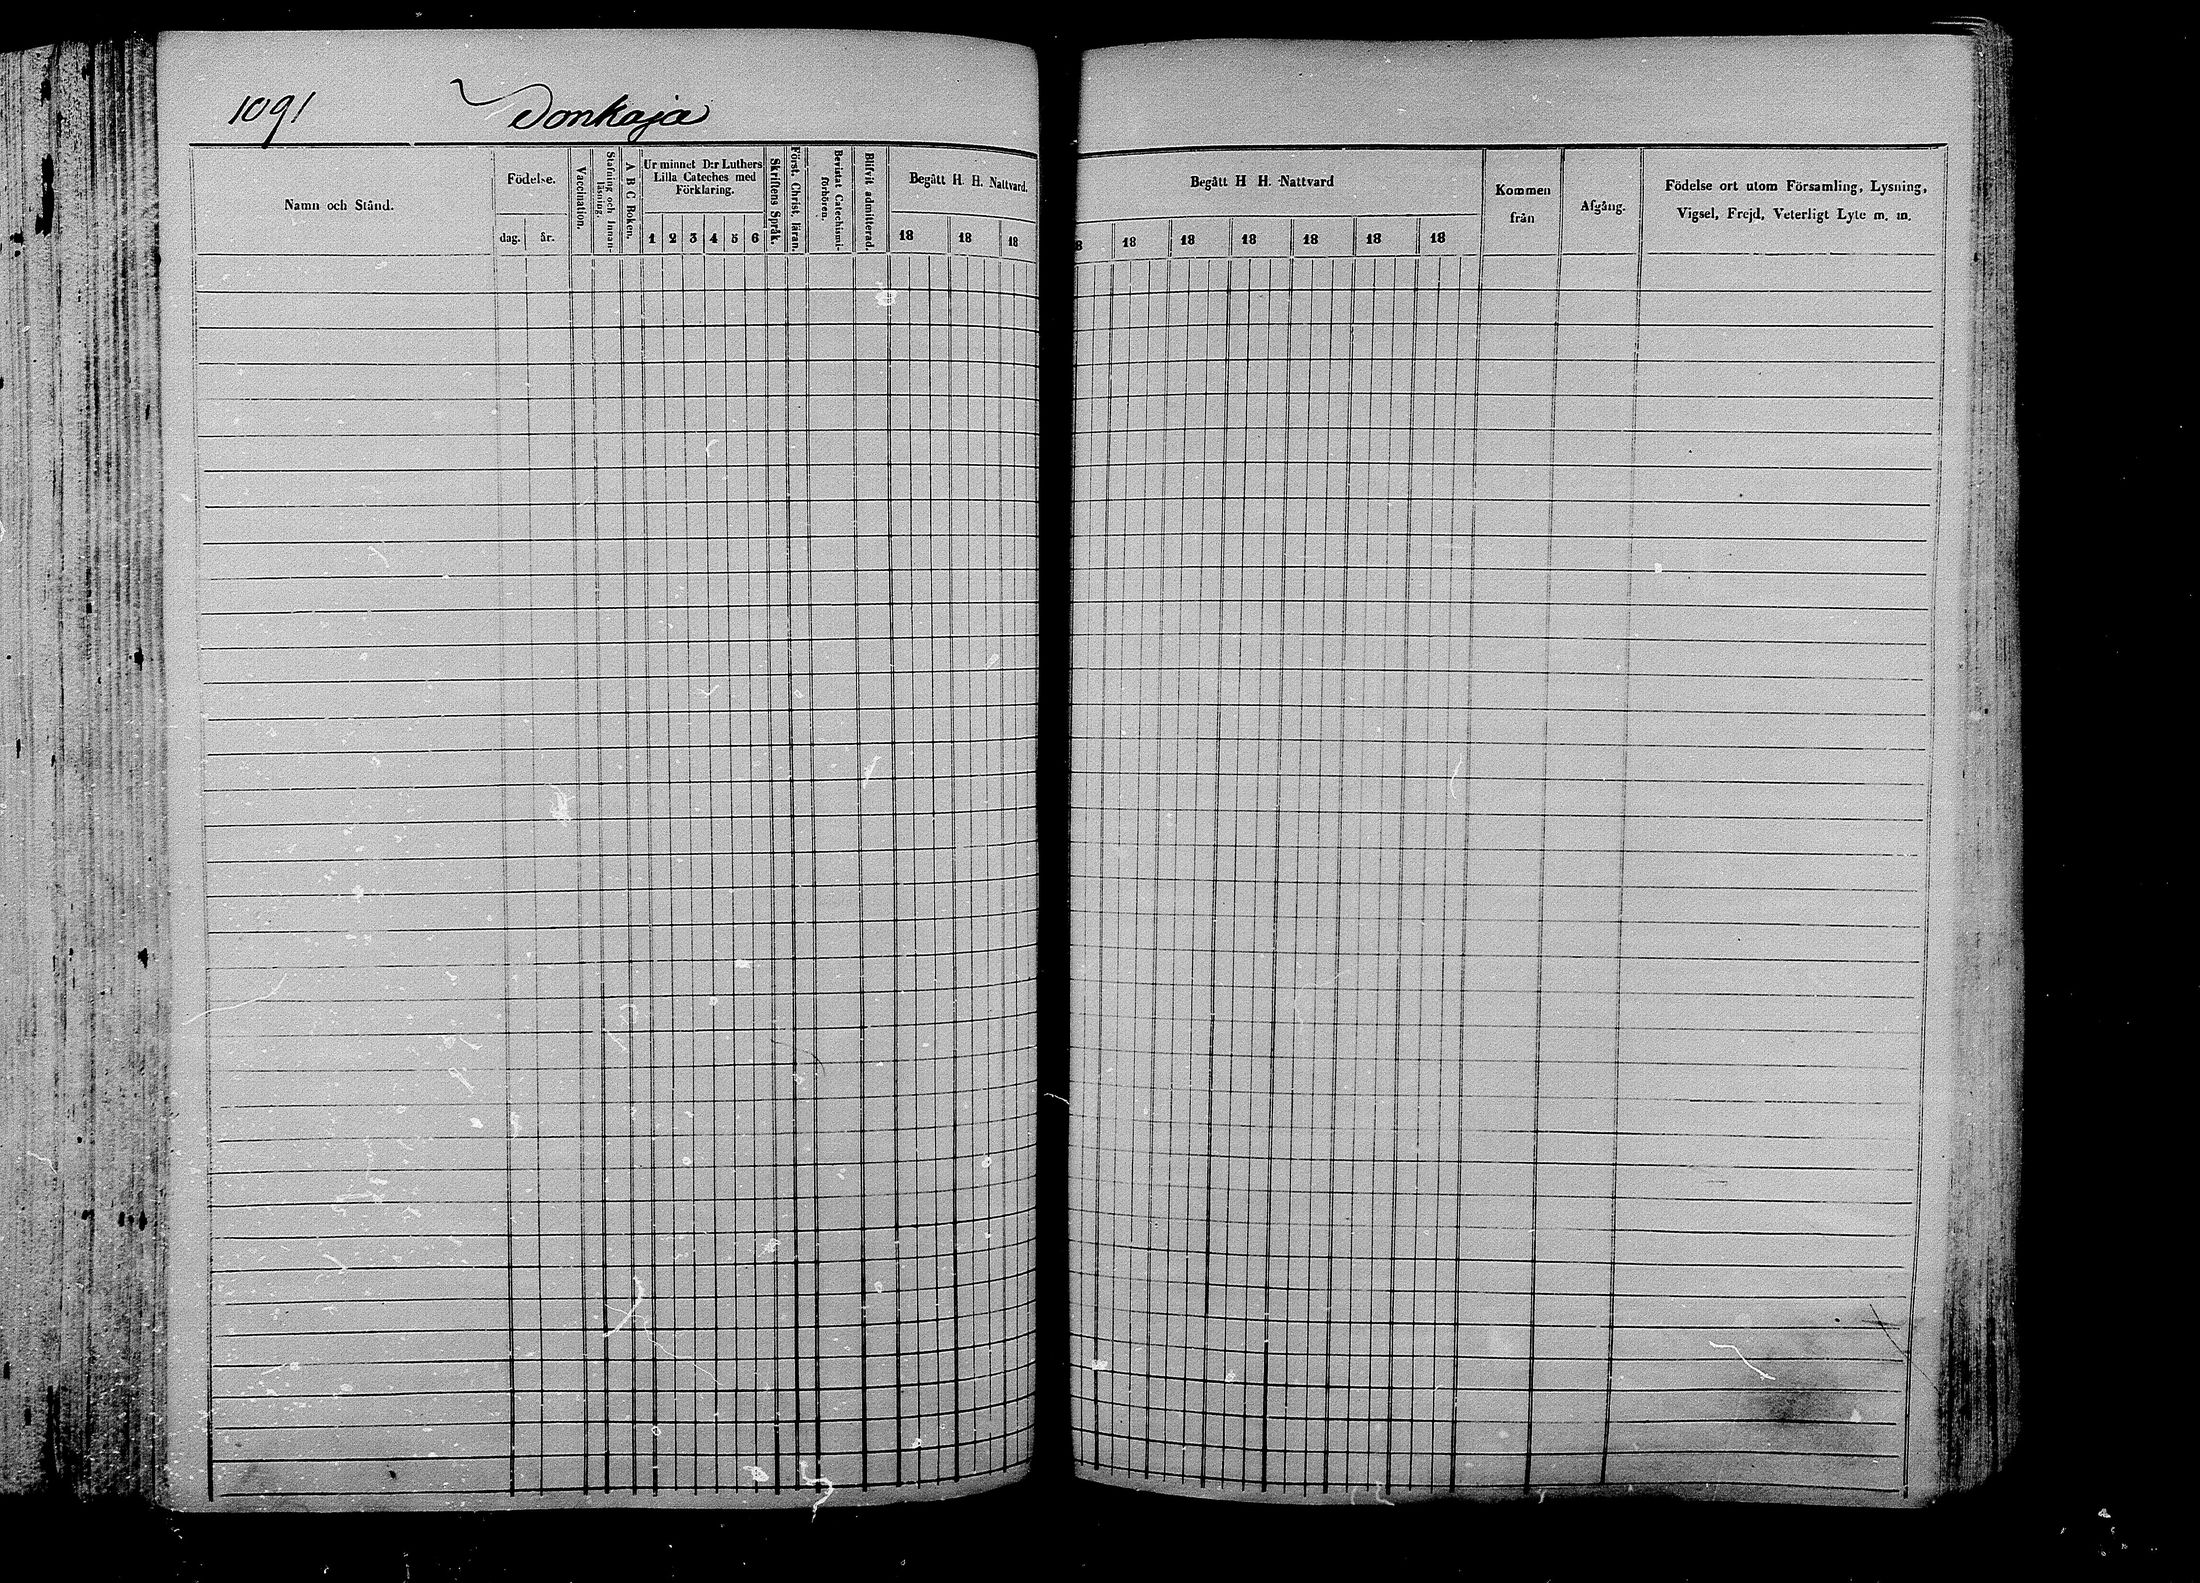 1091 Tonkaja
Namn och Stånd.
Födelse.
dag. år.
Vaccination.
Stafning och Innanläsning.
A B C Boken.
Ur minnet D:r Luthers
Lilla Cateches med
Förklaring.
1 2 3 4 5 6
Skriftens Språk.
Först. Christ. läran.
Bevistat Catechismi-
förhören.
Blifvit admitterad.
Begått H. H. Nattvard.
18 18 18
Begått H H. Nattvard
8 18 18 18 18 18 18
Kommen
från
Afgång.
Födelse ort utom Församling, Lysning,
Vigsel, Frejd, Veterligt Lyte m. m.